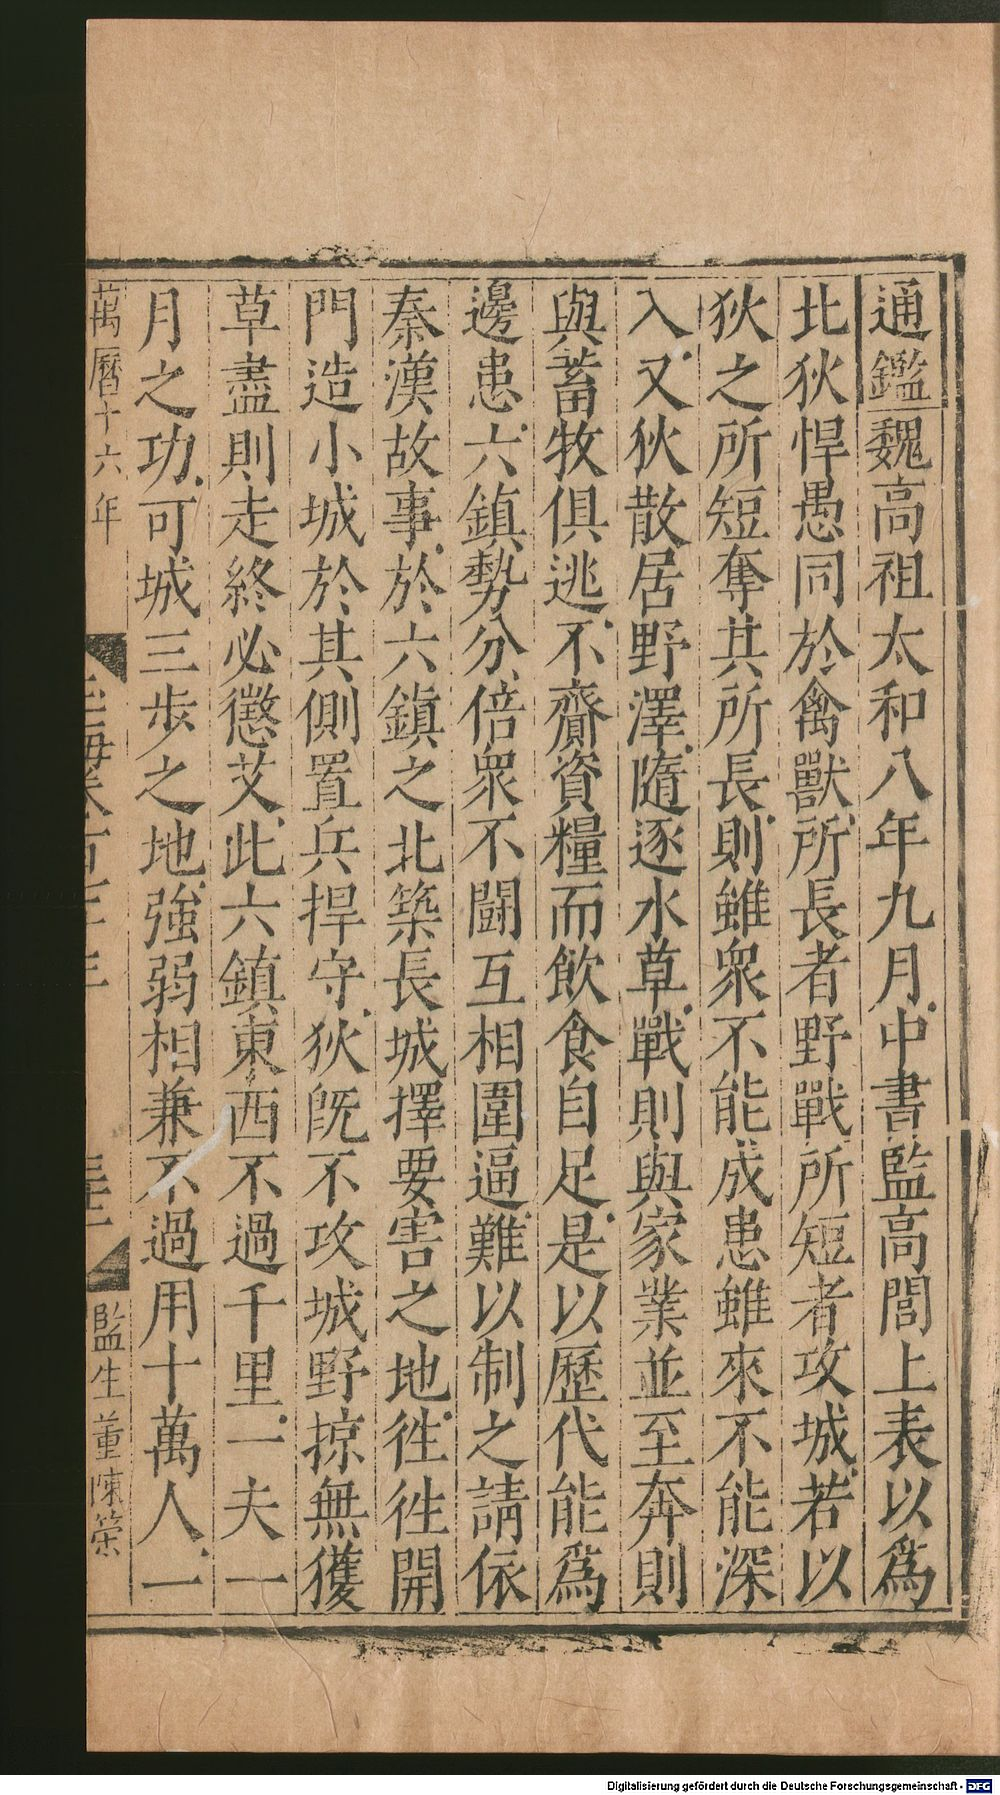 通鑑魏高祖太和八年九月中書監高閭上表以爲
北狄悍愚同於禽獸所長者野戰所短者攻城若以
狄之所短奪其所長則雖衆不能成患雖來不能深
入又狄散居野澤隨逐水草戰則與家業並至奔則
與蓄牧俱逃不齎資糧而飲食自足是以歷代能爲
邊患六鎮勢分倍衆不鬪互相圍逼難以制之請依
秦漢故事於六鎮之北築長城擇要害之地徃徃開
門造小城於其側置兵捍守狄旣不攻城野掠無獲
草盡則走終必懲艾此六鎮東西不過千里一夫一
月之功可城三步之地強弱相兼不過用十萬人一
萬曆十六年
監生董陳策
Digitalisierung gefördert durch die Deutsche Forschungsgemeinschaft - DFG